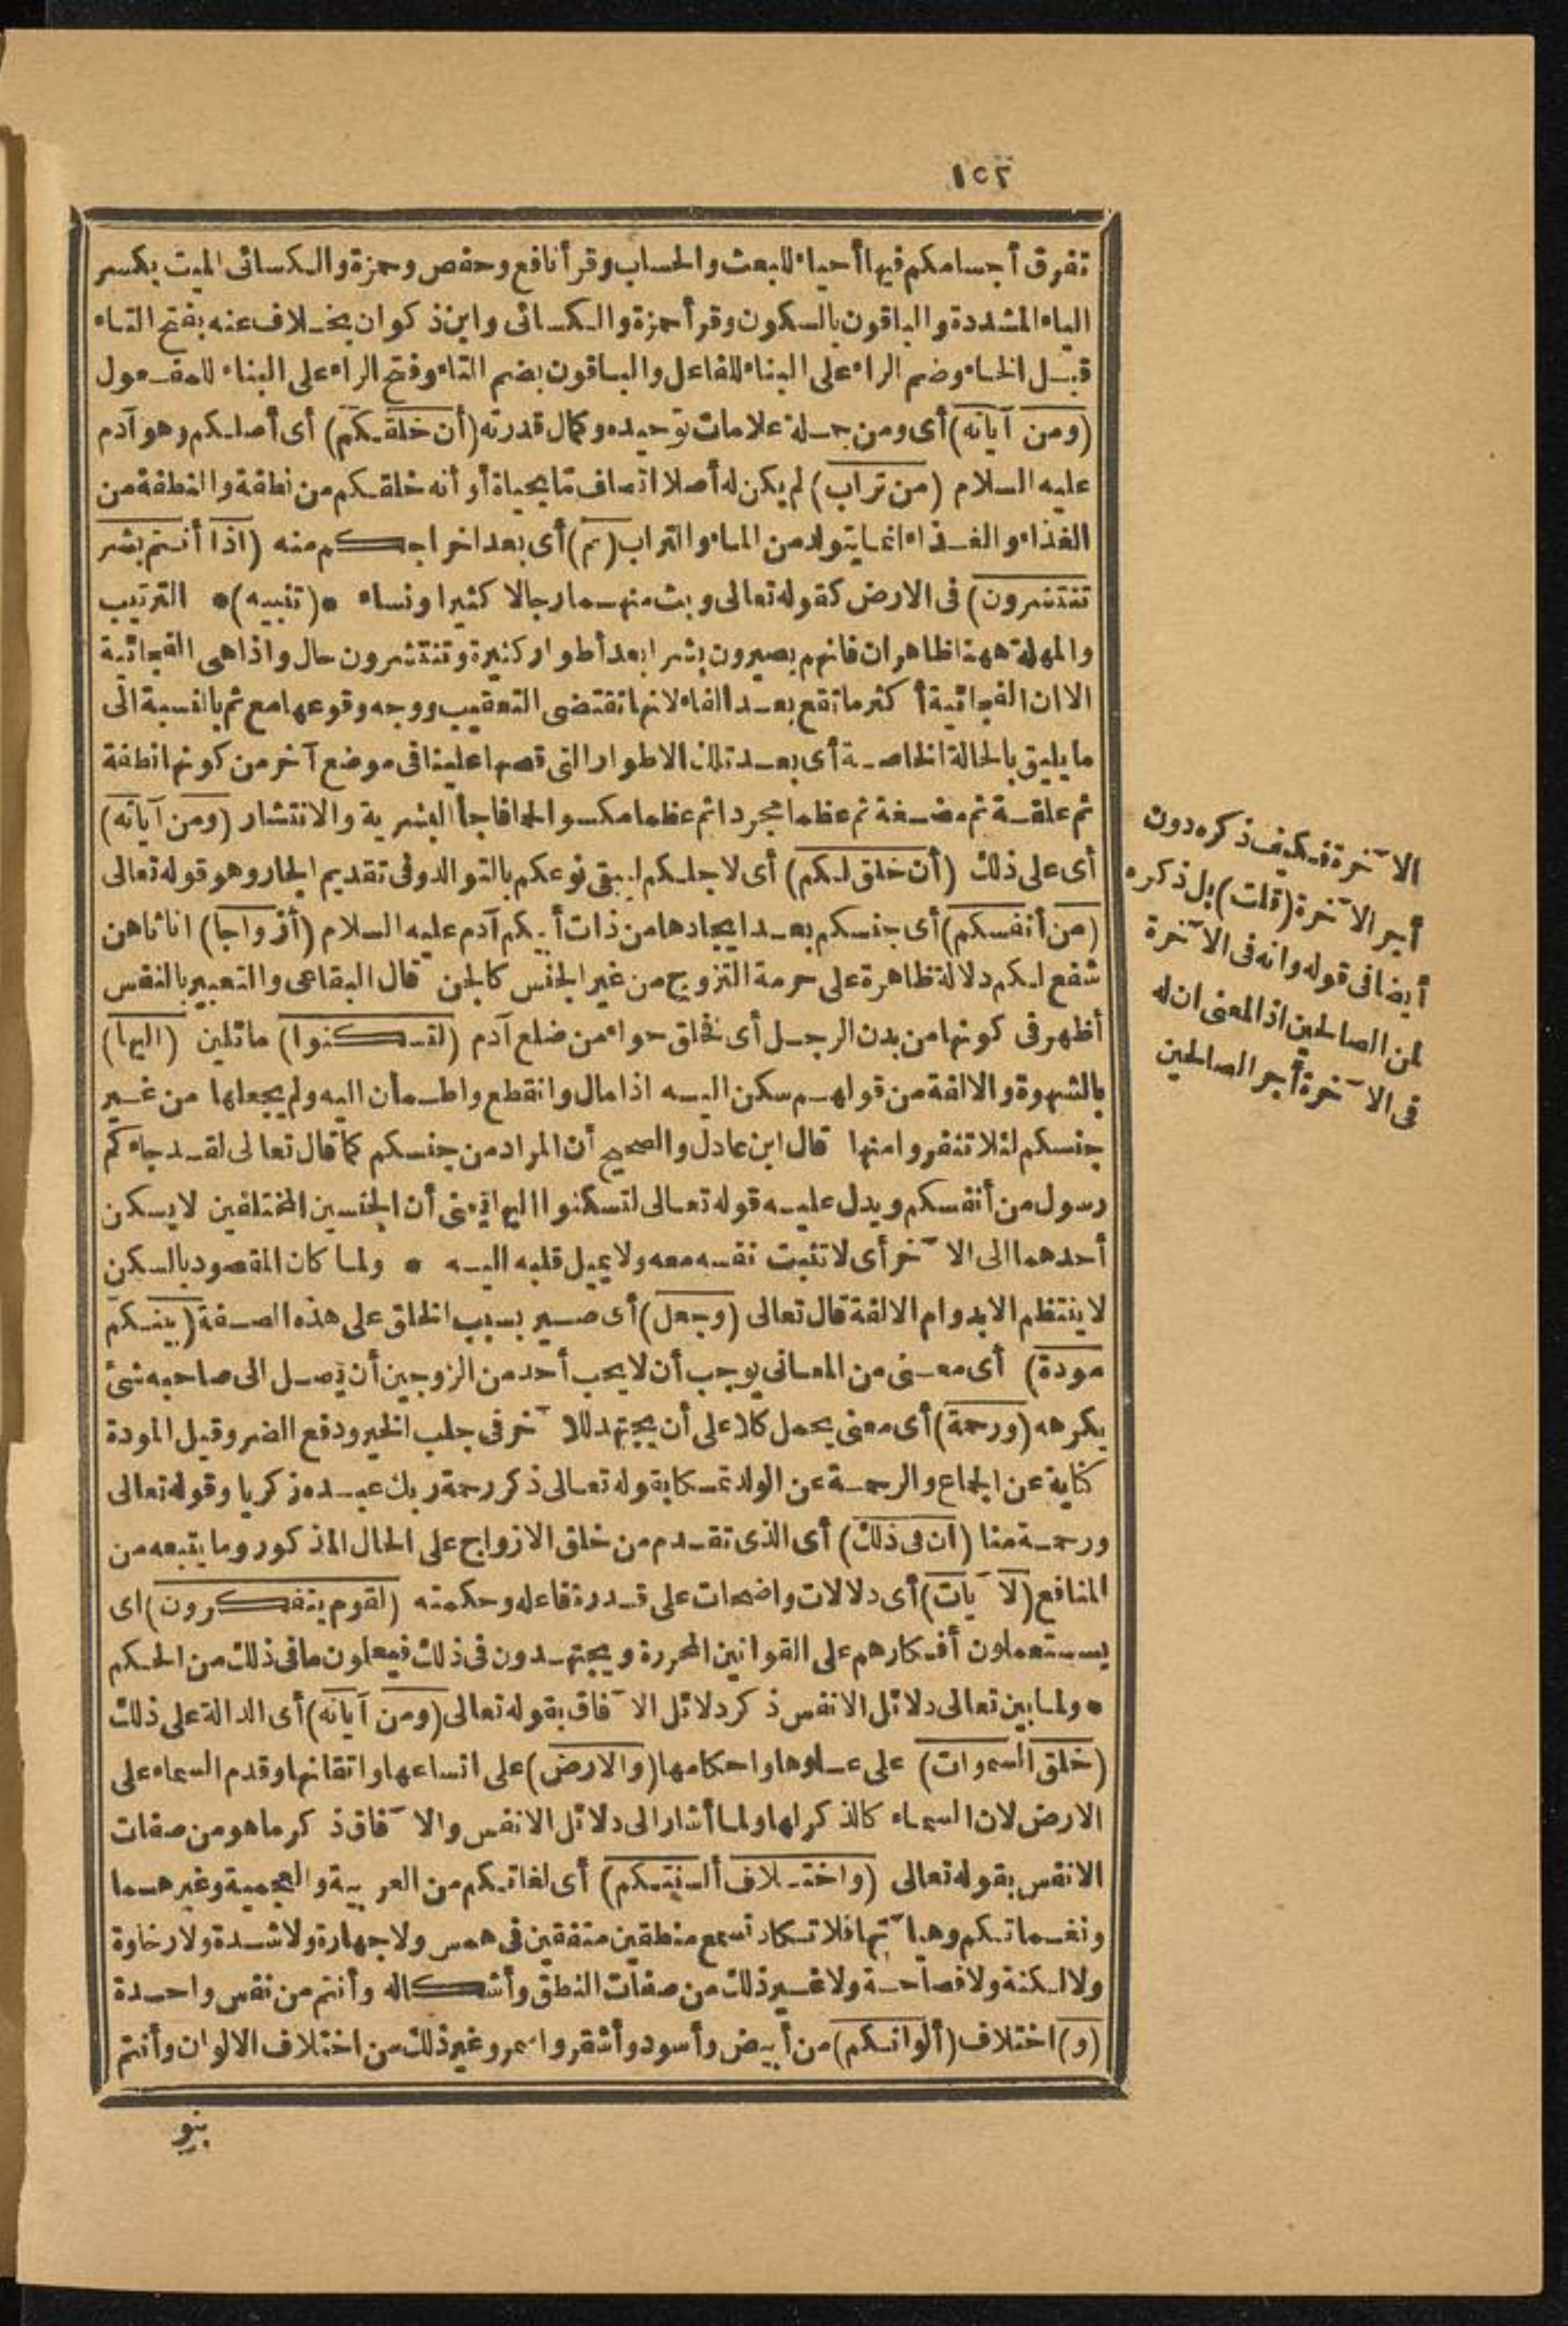 ١٥٢
تفرق أجسامكم فيها أحياء للبعث والحساب وقرأ نافع وحفص وحمزة والكسائى الميت بكسر
الياء المشددة والباقون بالسكون وقرأ حمزة والكسائى وابن ذكوان بخلاف عنه بفتح التاء
قبل الخاء وضم الراء على البناء للفاعل والباقون بضم التاء وفتح الراء على البناء للمفعول
(ومن آياته) أى ومن جملة علامات توحيده وكمال قدرته (أن خلقكم) أى أصلكم وهو آدم
عليه السلام (من تراب) لم يكن له أصلا اتصاف ما بحياة أو أنه خلقكم من نطفة والنطفة من
الغذاء والغذاء انما يتولد من الماء والتراب (ثم) أى بعد اخراجكم منه (اذا أنتم بشر
تنتشرون) فى الارض كقوله تعالى وبث منهما رجالا كثيرا ونساء • (تنبيه) • الترتيب
والمهلة ههنا ظاهران فانهم يصيرون بشرا بعد أطوار كثيرة وتنتشرون حال واذا هى الفجائية
الا ان الفجائية أكثر ما تقع بعد الفاء لانها تقتضى التعقيب ووجه وقوعها مع ثم بالنسبة الى
ما يليق بالحالة الخاصة أى بعد تلك الاطوار التى قصها علينا فى موضع آخر من كونها نطفة
ثم علقة ثم مضغة ثم عظما مجردا ثم عظما مكسوا لحما فاجأ البشرية والانتشار (ومن آياته)
أى على ذلك (أن خلق لكم) أى لاجلكم ليبقى نوعكم بالتوالد وفى تقديم الجار وهو قوله تعالى
(من أنفسكم) أى جنسكم بعد ايجادها من ذات أبيكم آدم عليه السلام (أزواجا) اناثا هن
شفع لكم دلالة ظاهرة على حرمة التزوج من غير الجنس كالجن قال البقاعى والتعبير بالنفس
أظهر فى كونها من بدن الرجل أى فخلق حواء من ضلع آدم (لتسكنوا) مائلين (اليها)
بالشهوة والالفة من قولهم سكن اليه اذا مال وانقطع واطمأن اليه ولم يجعلها من غير
جنسكم لئلا تنفروا منها قال ابن عادل والصحيح أن المراد من جنسكم كما قال تعالى لقد جاءكم
رسول من أنفسكم ويدل عليه قوله تعالى لتسكنوا اليها يعنى أن الجنسين المختلفين لا يسكن
أحدهما الى الآخر أى لا تثبت نفسه معه ولا يميل قلبه اليه • ولما كان المقصود بالسكن
لا ينتظم الا بدوام الالفة قال تعالى (وجعل) أى صير بسبب الخلق على هذه الصفة (بينكم
مودة) أى معنى من المعانى يوجب أن لا يحب أحد من الزوجين أن يصل الى صاحبه شئ
يكرهه (ورحمة) أى معنى يحمل كلا على أن يجتهد للآخر فى جلب الخير ودفع الضر وقيل المودة
كناية عن الجماع والرحمة عن الولد تمسكا بقوله تعالى ذكر رحمة ربك عبده زكريا وقوله تعالى
ورحمة منا (ان فى ذلك) أى الذى تقدم من خلق الازواج على الحال المذكور وما يتبعه من
المنافع (لآيات) أى دلالات واضحات على قدرة فاعله وحكمته (لقوم يتفكرون) اى
يستعملون أفكارهم على القوانين المحررة ويجتهدون فى ذلك فيعلون ما فى ذلك من الحكم
• ولما بين تعالى دلائل الانفس ذكر دلائل الآفاق بقوله تعالى (ومن آياته) أى الدالة على ذلك
(خلق السموات) على علوها واحكامها (والارض) على اتساعها واتقانها وقدم السماء على
الارض لان السماء كالذكر لها ولما أشار الى دلائل الانفس والآفاق ذكر ما هو من صفات
الانفس بقوله تعالى (واختلاف ألسنتكم) أى لغاتكم من العربية والعجمية وغيرهما
ونغماتكم وهيآتها فلا تكاد تسمع منطقين متفقين فى همس ولا جهارة ولا شدة ولا رخاوة
ولا لكنة ولا فصاحة ولا غير ذلك من صفات النطق وأشكاله وأنتم من نفس واحدة
(و) اختلاف (ألوانكم) من أبيض وأسود وأشقر واسمر وغير ذلك من اختلاف الالوان وأنتم
بنو
الآخرة فكيف ذكره دون
أجر الآخرة (قلت) بل ذكره
أيضا فى قوله وانه فى الآخرة
لمن الصالحين اذ المعنى ان له
فى الآخرة أجر الصالحين